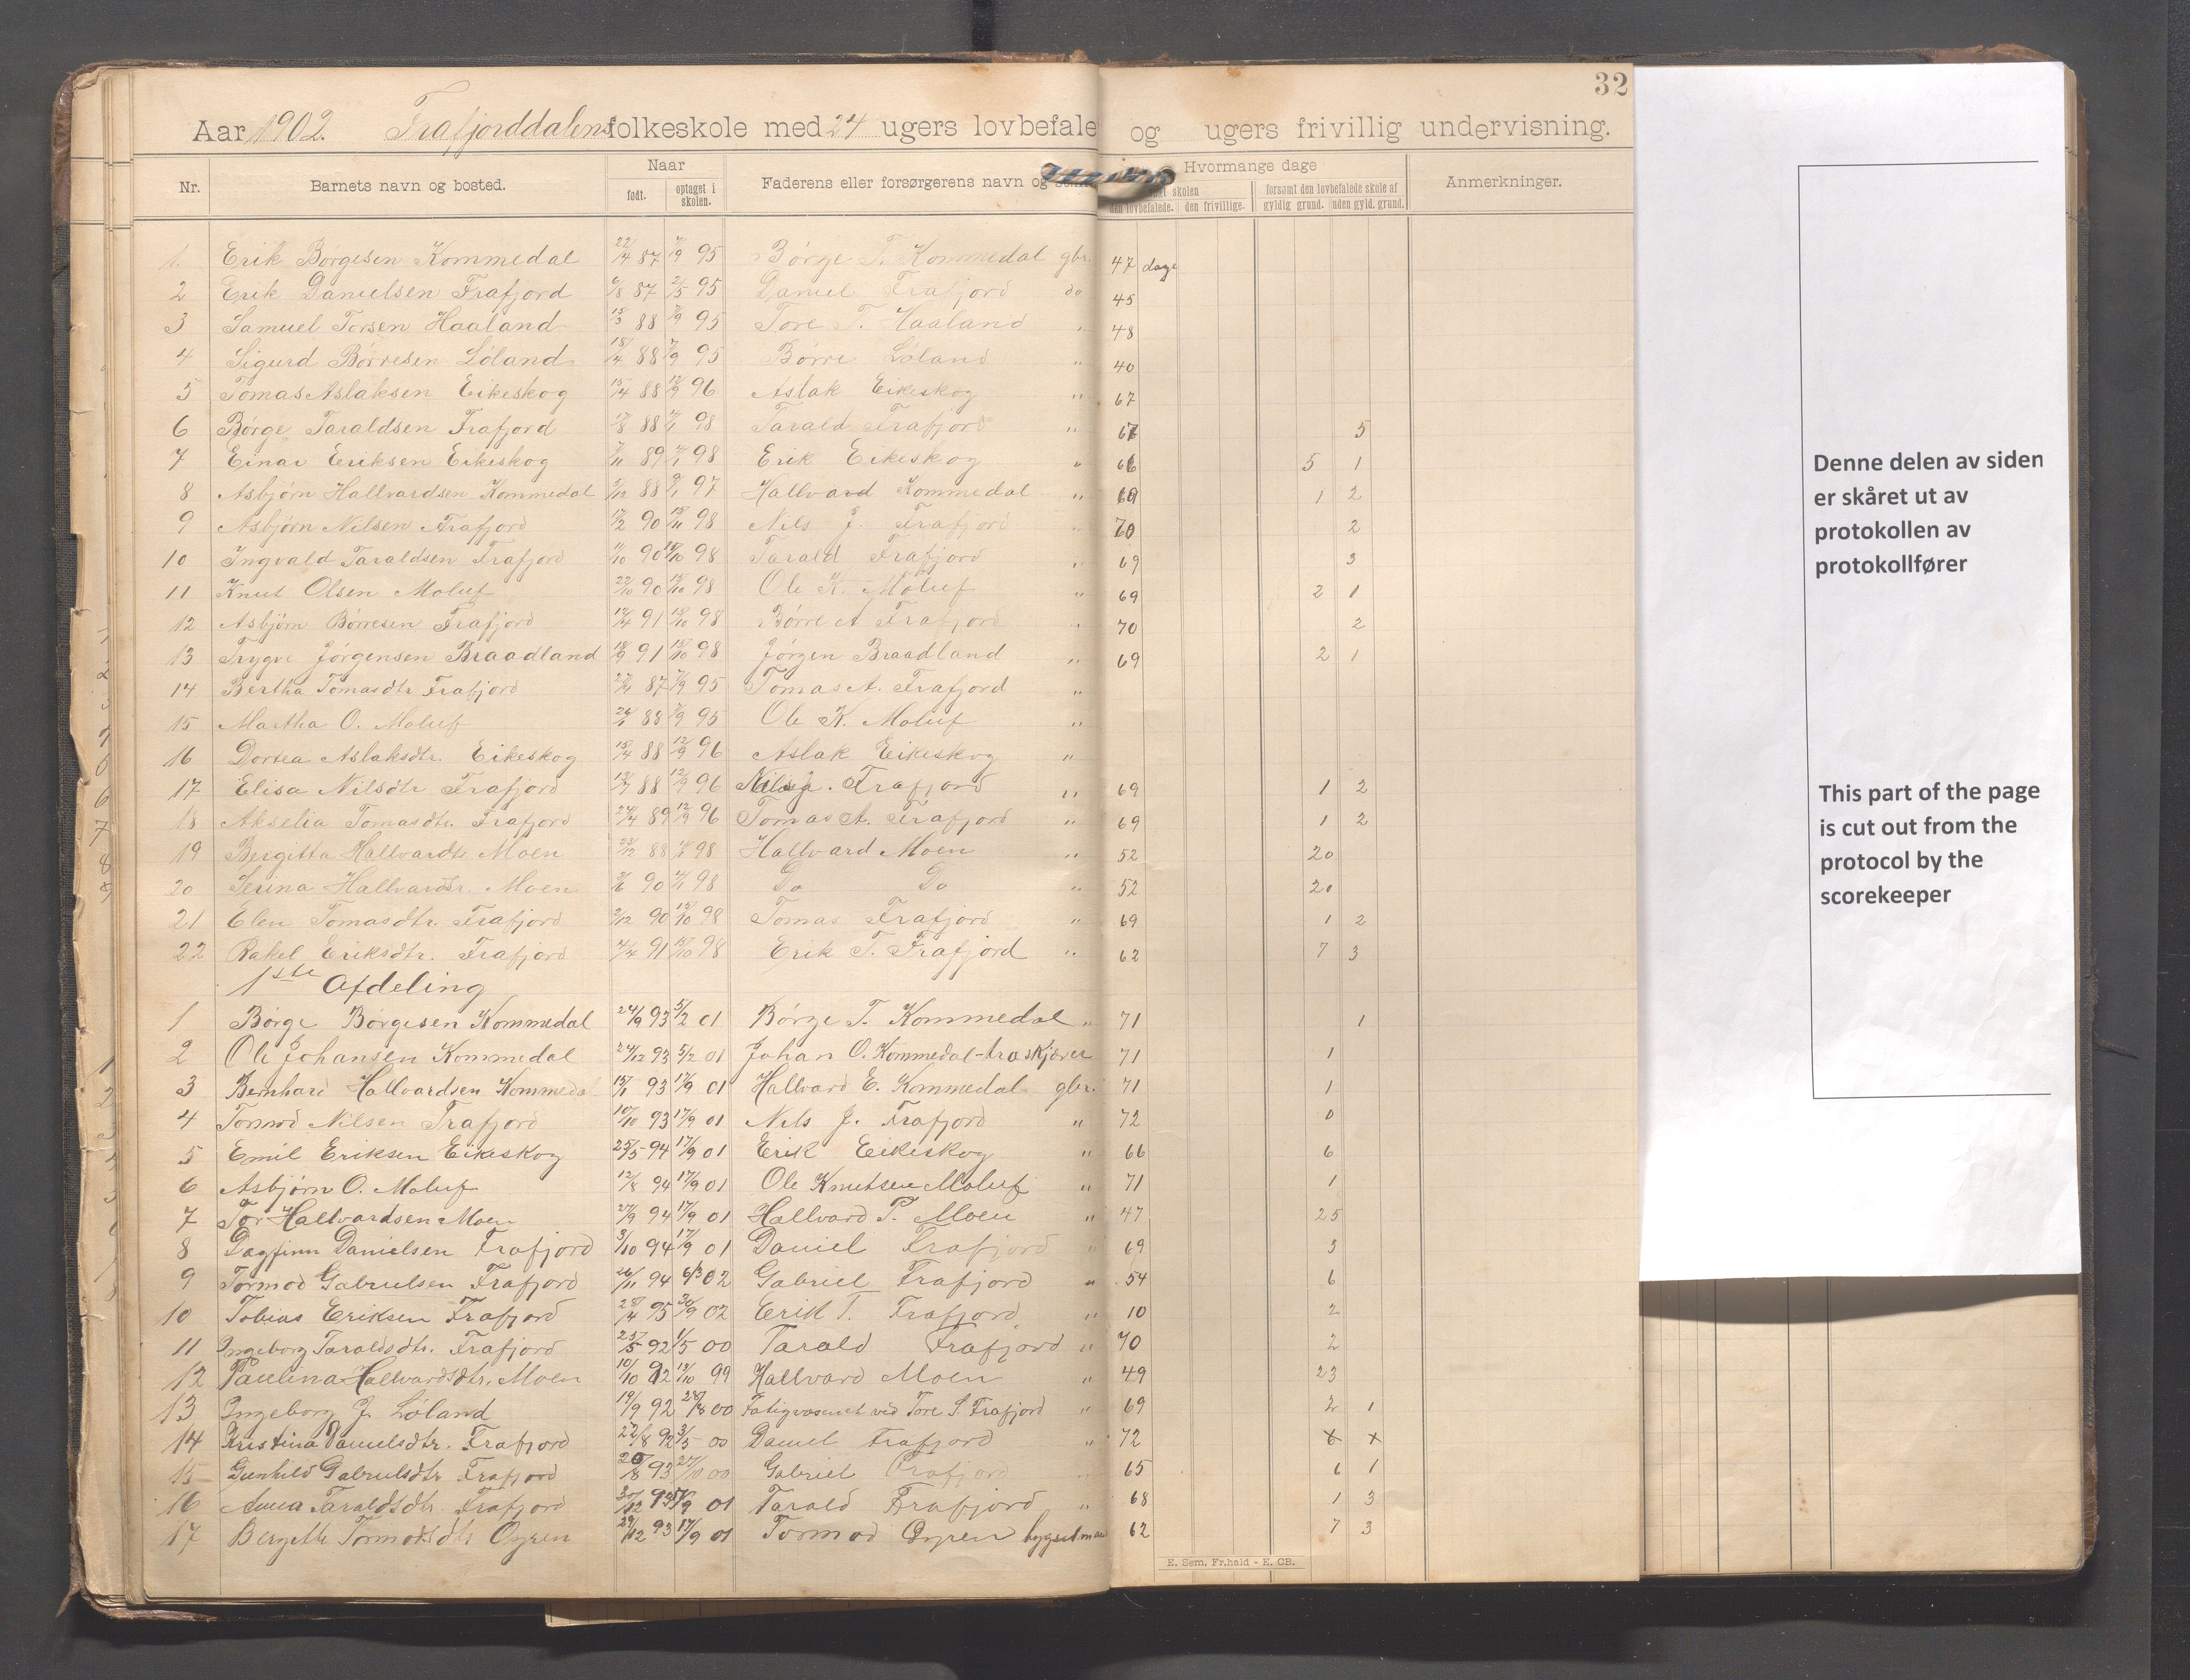 32
Aar 1902. Frafjorddalens folkeskole med 24 ugers lovbefale og ugers frivillig undervisning.
Nr. Barnets navn og bosted. Naar født. optaget i skolen. Faderens eller forsørgerens navn og Hvormange dage skolen den lovbefalede. den frivillige. forsømt den lovbefalede skole af gyldig grund. uden gyld. grund. Anmerkninger.
1. Erik Børgesen Kommedal 22/4 87 7/9 95 Børge T. Kommedal gbr. 47 dage
2 Erik Danielsen Frafjord 6/8 87 2/5 95 Daniel Frafjord do 45
3 Samuel Torsen Haaland 88 7/9 95 Tore T. Haaland " 48
4 Sigurd Børresen Løland 18/4 88 7/9 95 Børre Løland " 40
5 Tomas Aslaksen Eikeskog 15/4 88 12/9 96 Aslak Eikeskog " 67
6 Børge Taraldsen Frafjord 88 98 Tarald Frafjord " 5
7 Einar Eriksen Eikeskog 7/11 89 98 Erik Eikeskog " 66 5 1
8 Asbjørn Hallvardsen Kommedal 88 97 Hallvard Kommedal " 69 1 2
9 Asbjørn Nilsen Frafjord 17/2 90 98 Nils J. Frafjord " 70 2
10 Ingvald Taraldsen Frafjord 90 98 Tarald Frafjord " 69 3
11 Knut Olsen Moluf 22/10 90 98 Ole K. Moluf " 69 2 1
12 Asbjørn Børresen Frafjord 91 98 Børre A Frafjord " 70 2
13 Trygve Jørgensen Braadland 18/9 91 98 Jørgen Braadland " 69 2 1
14 Bertha Tomasdtr Frafjord 87 7/9 95 Tomas A. Frafjord "
15 Martha O. Moluf 88 7/9 95 Ole K. Moluf "
16 Dortea Aslaksdtr. Eikeskog 15/4 88 12/9 96 Aslak Eikeskog "
17 Elisa Nilsdtr Frafjord 88 12/9 96 Nils J. Frafjord " 69 1 2
18 Akselia Tomasdtr. Frafjord 24/4 89 12/9 96 Tomas A. Frafjord " 69 1 2
19 Bergitta Hallvardtr Moen 88 98 Hallvard Moen " 52 20
20 Serina Hallvardtr. Moen 90 98 Do Do " 52 20
21 Elen Tomasdtr. Frafjord 90 98 Tomas Frafjord " 69 1 2
22 Rakel Eriksdtr. Frafjord 91 98 Erik T. Frafjord " 62 7 3
1ste Afdeling
1 Børge Børgesen Kommedal 24/9 93 5/2 01 Børge T. Kommedal " 71 1
2 Ole Johansen Kommedal 24/12 93 5/2 01 Johan O. Kommedal - 71 1
3 Bernhard Hallvardsen Kommedal 93 17/9 01 Hallvard E. Kommedal gbr. 71 1
4 Tormod Nilsen Frafjord 10/10 93 17/9 01 Nils J. Frafjord " 72 0
5 Emil Eriksen Eikeskog 25/5 94 17/9 01 Erik Eikeskog " 66 6
6 Asbjørn O. Moluf 12/8 94 17/9 01 Ole Knutsen Moluf " 71 1
7 Tor Hallvardsen Moen 27/9 94 17/9 01 Hallvard P. Moen " 47 25
8 Dagfinn Danielsen Frafjord 3/10 94 17/9 01 Daniel Frafjord " 69 3
9 Tormod Gabrielsen Frafjord 26/11 94 6/3 02 Gabriel Frafjord " 54 6
10 Tobias Eriksen Frafjord 28/4 95 30/9 02 Erik T. Frafjord " 10 2
11 Ingeborg Taraldsdtr. Frafjord 25/5 92 1/5 00 Tarald Frafjord " 70 2
12 Paulina Hallvardsdtr. Moen 10/10 92 99 Hallvard Moen " 49 23
13 Ingeborg J. Løland 19/9 92 28/8 00 Fatigvæsenet ved Tore S. Frafjord " 69 2 1
14 Kristina Danielsdtr. Frafjord 22/8 92 3/5 00 Daniel Frafjord " 72
15 Gunhild Gabrielsdtr Frafjord 93 00 Gabriel Frafjord 65 6 1
16 Anna Taraldsdtr. Frafjord 30/12 93 01 Tarald Frafjord " 68 1 3
17 Bergitte Tormodsdtr Øyren 29/12 93 17/9 01 Tormod Øyren bygselmand 62 7 3
E. Sem, Fr.hald - E. CB.
Denne delen av siden
er skåret ut av
protokollen av
protokollfører
This part of the page
is cut out from the
protocol by the
scorekeeper